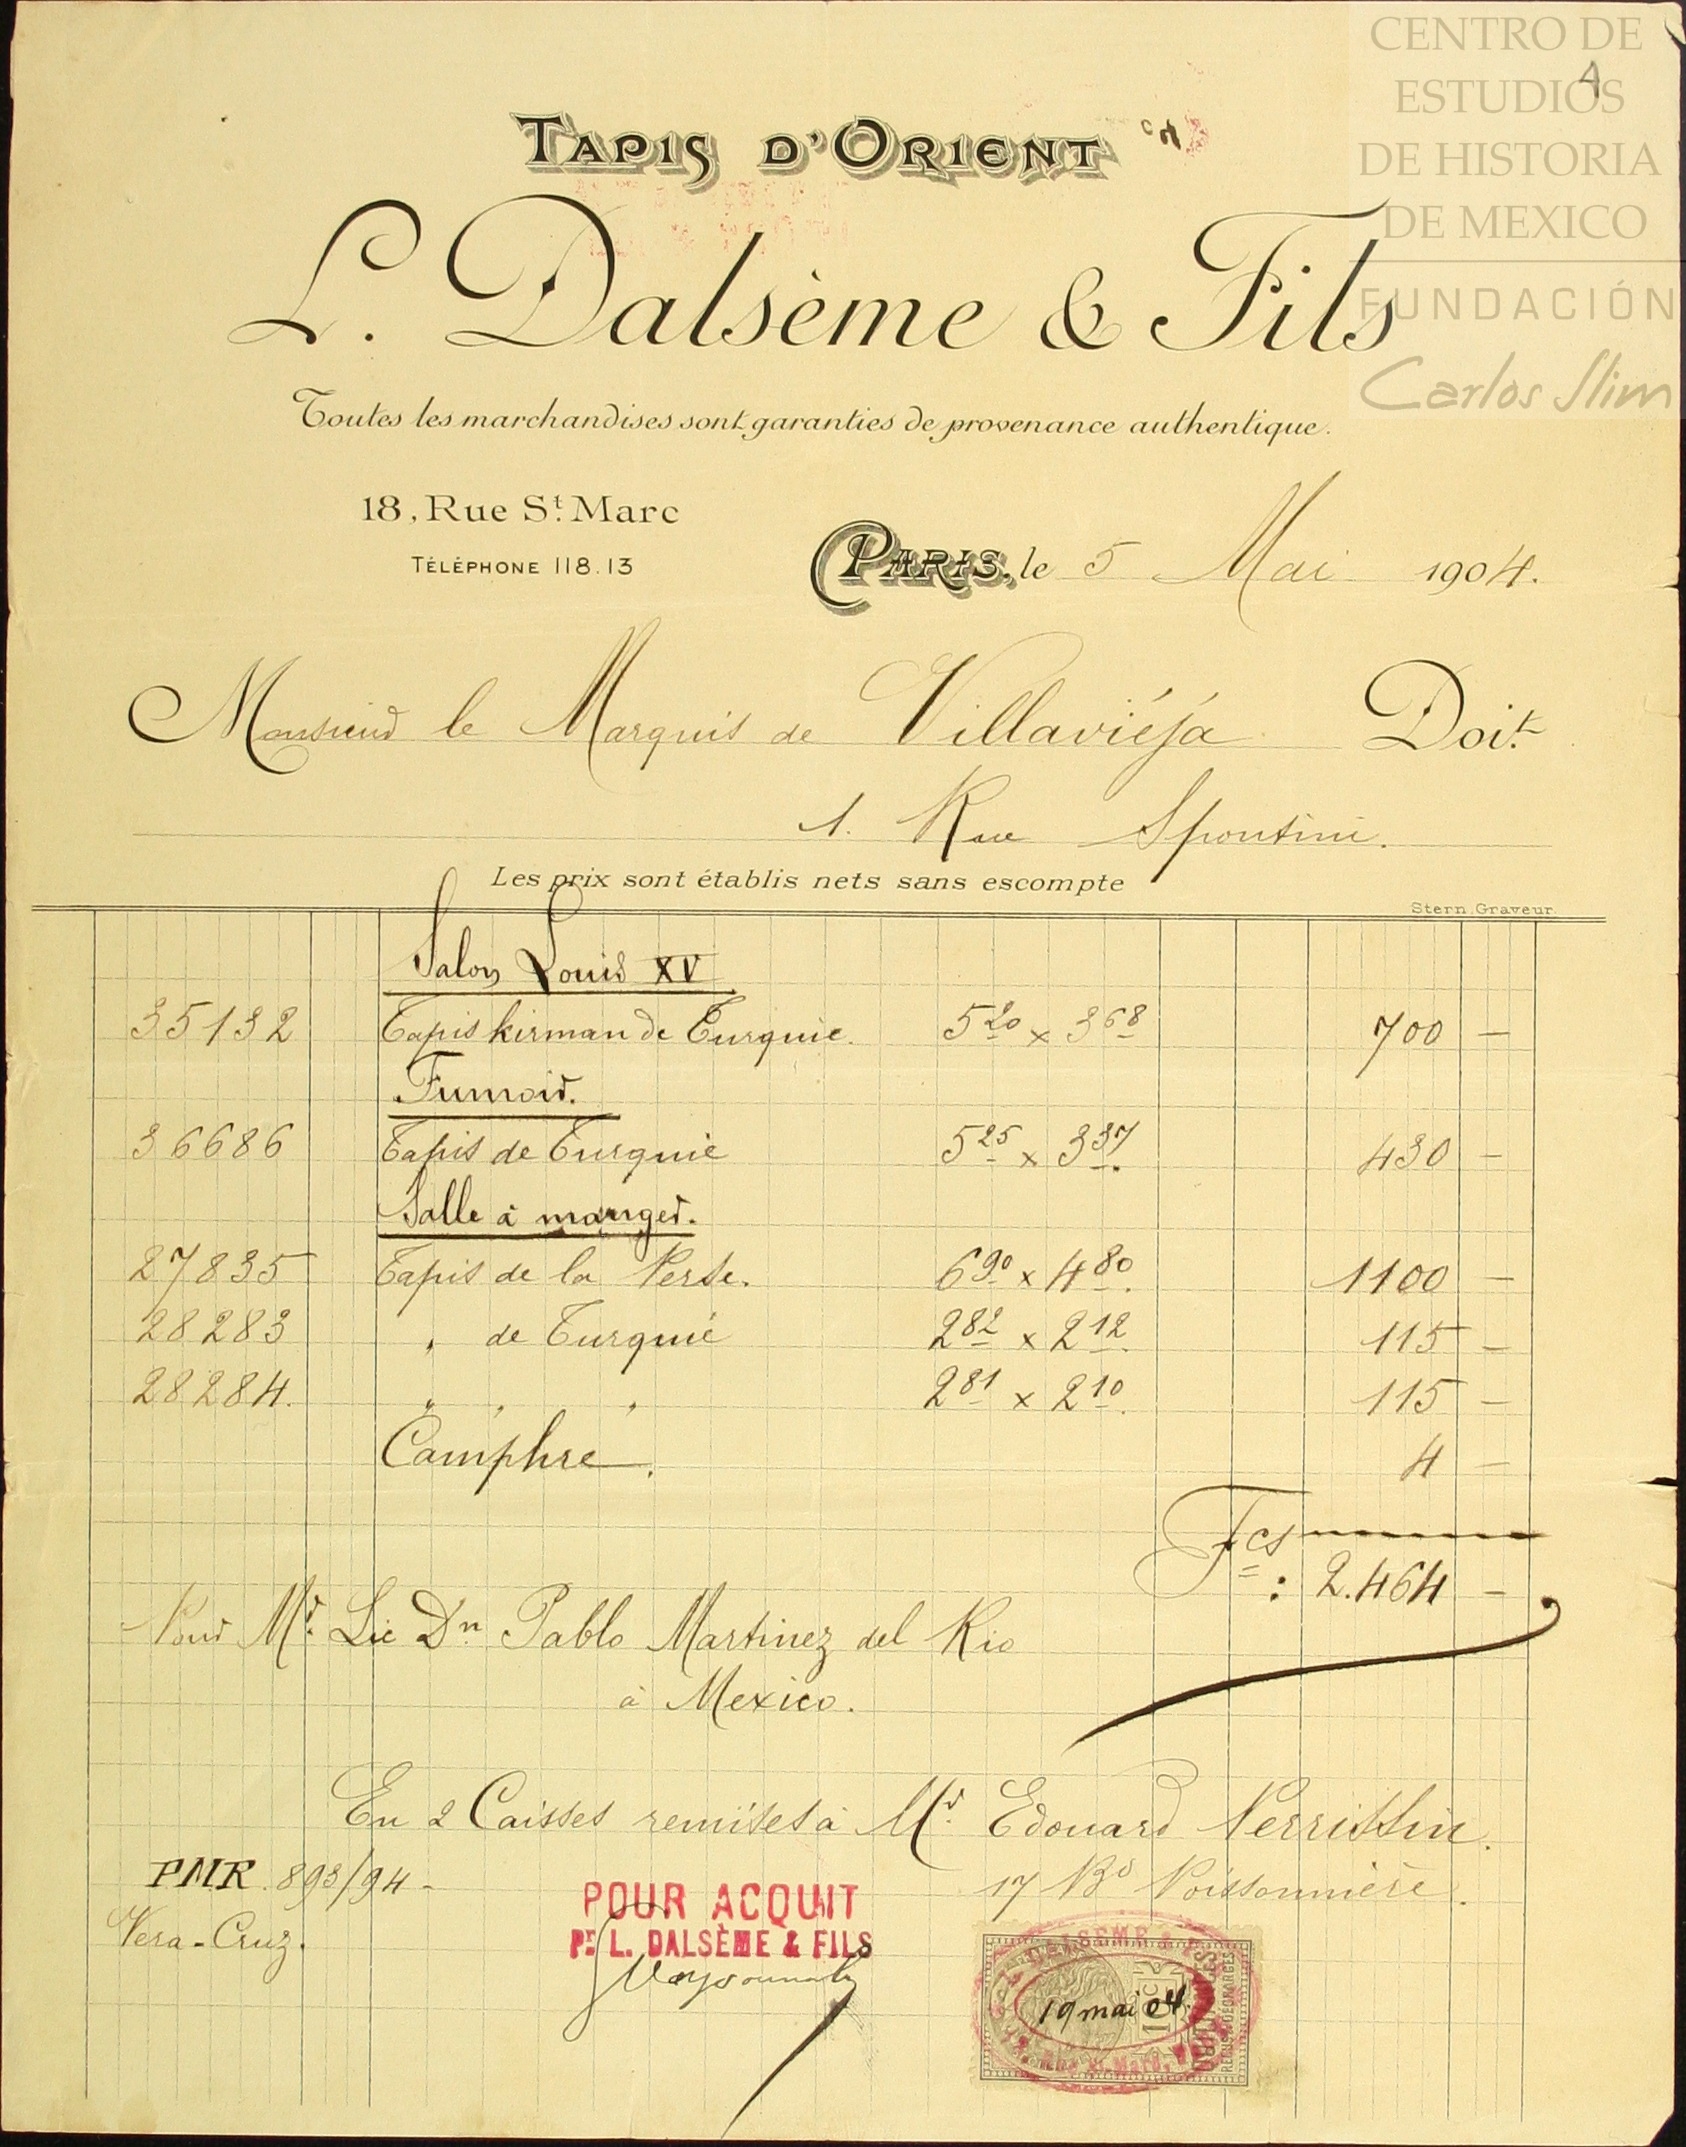 CENTRO DE
ESTUDIOS
DE HISTORIA
DE MEXICO
FUNDACIÓN
Carlos Slim
TAPIS D'ORIENT
L. Dalsème & Fils
Toutes les marchandises sont garanties de provenance authentique.
18, Rue St. Marc
TÉLÉPHONE 118.13
PARIS, le 5 Mai 1904.
Monsieur le Marquis de Villaviéja Doit
1. Rue Spontini.
Les prix sont établis nets sans escompte
Stern Graveur
Salon Louis XV
35132 Tapis kirman de Turquie. 5 20 x 3 68 700 —
Fumoir.
36686 Tapis de Turquie 5 25 x 3 37. 430 —
Salle à manger.
27835 Tapis de la Perse. 6 90 x 4 80. 1100 —
28283 " de Turquie 2 82 x 2 12. 115 —
28284. " " " 2 81 x 2 10. 115 —
Camphre. 4 —
Fcs: 2.464 —
Pour Mr. Lic Dn Pablo Martinez del Rio
à Mexico.
En 2 Caisses remises à Mr. Edouard Perrissin.
PMR 893/94 - 17 Bd Poissonnière.
Vera-Cruz.
POUR ACQUIT
Pr. L. DALSÈME & FILS
19 mai 04.